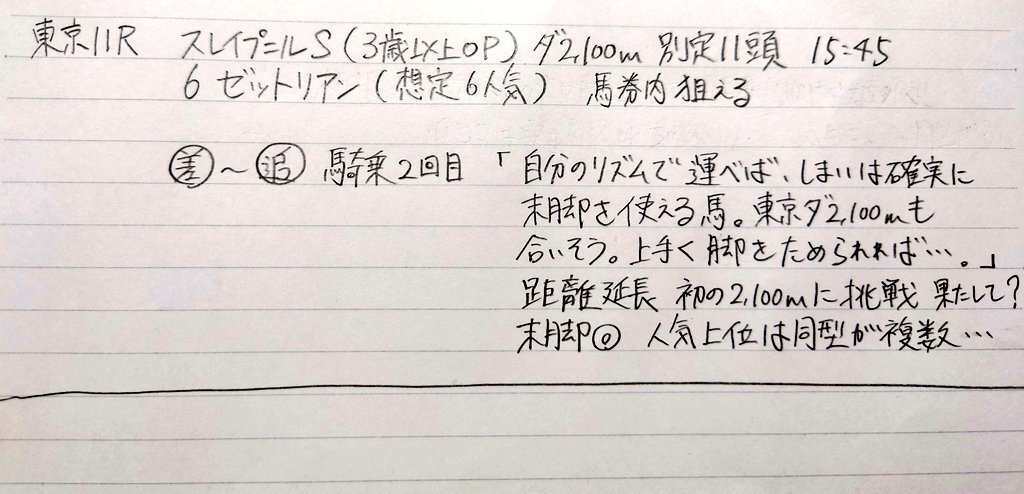 東京11R スレイプニルS(3歳以上OP) ダ2,100m 別定11頭 15:45
6 ゼットリアン(想定6人気) 馬券内狙える
差~追 騎乗2回目 「自分のリズムで運べば、しまいは確実に
末脚を使える馬。東京ダ2,100mも
合いそう。上手く脚をためられれば…。」
距離延長 初の2,100mに挑戦 果たして?
末脚◎ 人気上位は同型が複数…